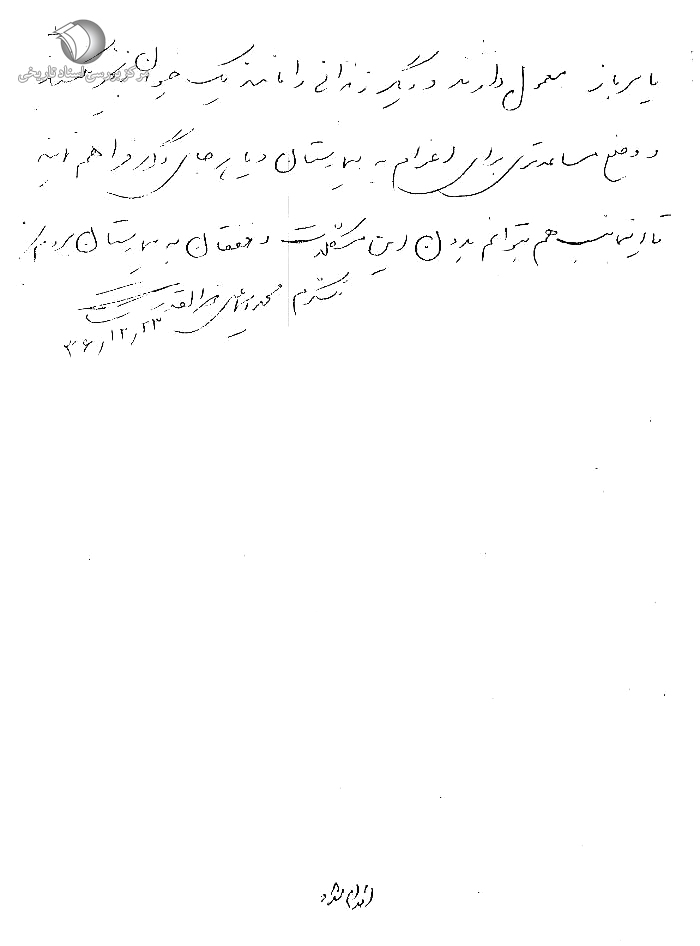 مرکز بررسی اسناد تاریخی
یا سرباز معمول دارند و دیگر زندانی را مانند یک حیوان
و وضع مساعدتری برای اعزام به بیمارستان و یا هر جای دیگر فراهم آید
تا اینجانب هم بتوانم بدون این مشکلات و خفقان به بیمارستان بروم
متشکرم محمد
۳۶/۱۲/۲۳
اقدام شد